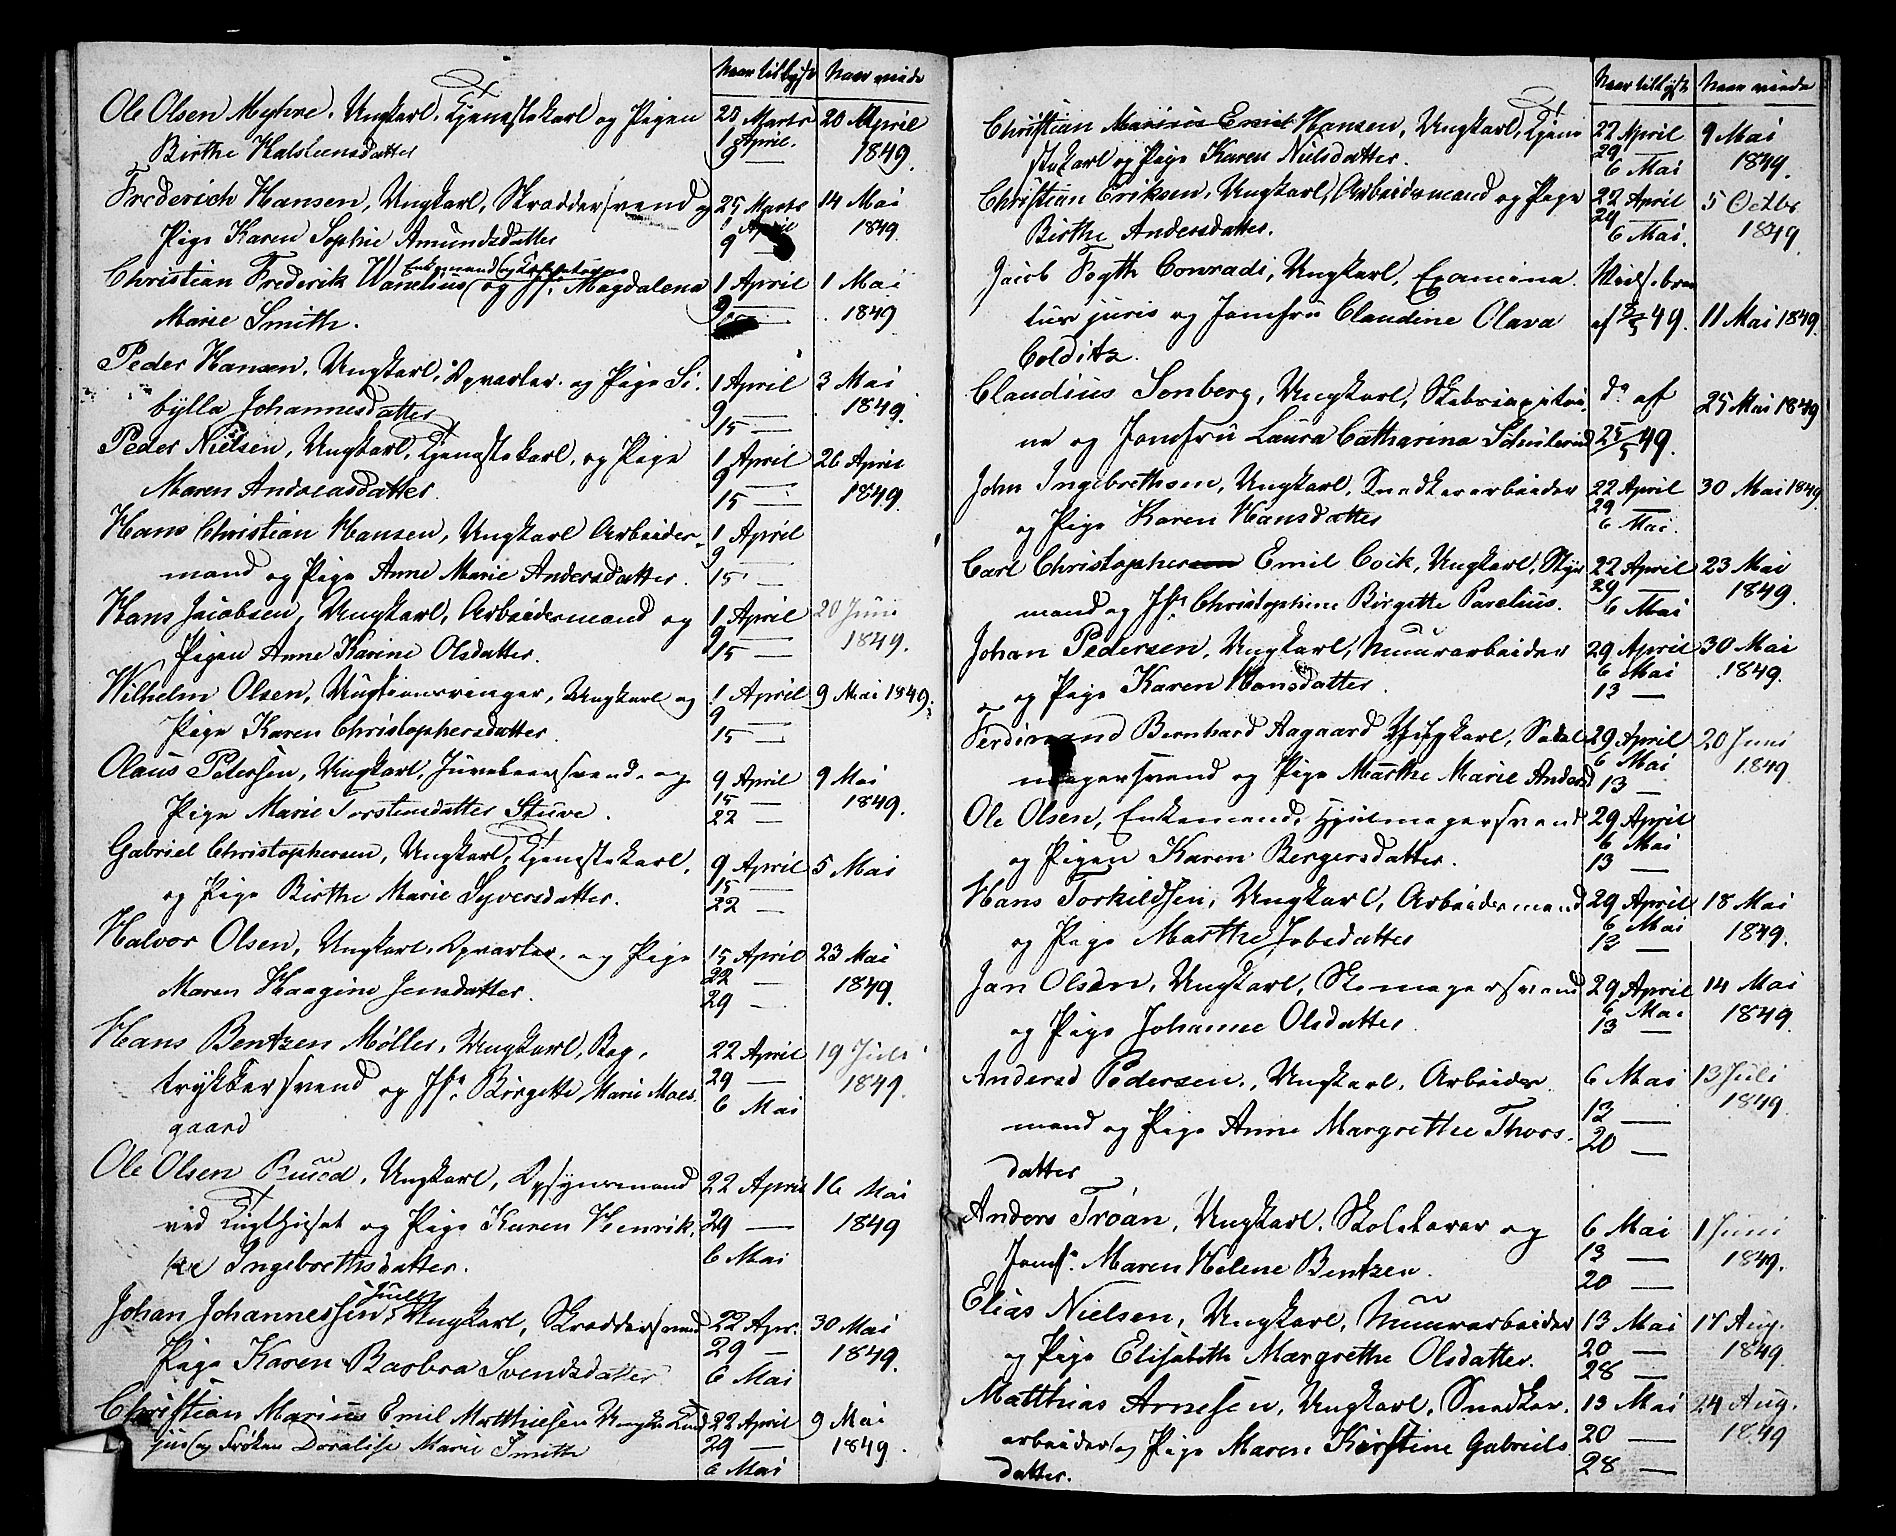 Naar tillyste Naar viede
Ole Olsen Myhre, Ungkarl, Tjenestekarl og Pigen 28 Marts 20 April
Birthe Halsteensdatter 1 April. 9 — 1849.
Frederich Hansen, Ungkarl, Skræddersvend og 25 Marts 14 Mai
Pige Karen Sophie Amundsdatter 1 April 9 1849.
Enkemand og
Christian Frederik Wanelius og Jfr. Magdalena 1 April 1 Mai
Marie Smith. 9 — 1849
Peder Hansen, Ungkarl, Opvarter og Pige Si- 1 April 3 Mai
bylla Johannesdatter 9 — 15 — 1849.
Peder Nielsen, Ungkarl, Tjenestekarl, og Pige 1 April 26 April
Maren Andreasdatter. 9 — 15 — 1849.
Hans Christian Hansen, Ungkarl Arbeider- 1 April
mand og Pige Anne Marie Andersdatter. 9 — 15 —
Hans Jacobsen, Ungkarl, Arbeidsmand og 1 April 20 Juni
Pigen Anne Karine Olsdatter. 9 — 15 — 1849.
Wilhelm Olsen, Ungkarl og 1 April 9 Mai 1849.
Pige Karen Christophersdatter. 9 — 15 —
Olaus Petersen, Ungkarl, Juveleersvend, og 9 April 9 Mai
Pige Marie Torstensdatter Stuve. 15 — 22 — 1849.
Gabriel Christophersen, Ungkarl, Tjenestekarl, 9 April 5 Mai
og Pige Birthe Marie Syversdatter. 15 — 22 —
Halvor Olsen, Ungkarl, Opvarter, og Pige 15 April 23 Mai
Maren Haagine Jensdatter. 22 — 29 — 1849.
Hans Bentzen Møller, Ungkarl, Bog- 22 April 19 Juli
trykkersvend og Jfr. Birgette Marie Moes- 29 — 1849.
gaard 6 Mai
Ole Olsen Ruud, Ungkarl, Opsynsmand 22 April 16 Mai
ved Tugthuset og Pige Karen Henrik- 29 — 1849
ke Ingebrethsdatter. 6 Mai
Juell
Johan Johannessen, Ungkarl, Skræddersvend 22 Apr. 30 Mai
Pige Karen Barbra Svendsdatter 29 — 6 Mai 1849.
Christian Marius Emil Matthiesen Ungk. Cand 22 April 9 Mai
jur. og Frøken Doralise Marie Smith 29 — 6 Mai 1849.
Naar tillyste Naar viede
Christian Marius Emil Hansen, Ungkarl, Tjene- 22 April 9 Mai
stekarl og Pige Karen Nielsdatter. 29 — 6 Mai 1849.
Christian Eriksen, Ungkarl, Arbeidsmand og Pige 22 April 5 Octbr
Birthe Andersdatter. 29 — 6 Mai. 1849.
Jacob Fogth Conradi, Ungkarl, Examina- Vielsebrev
tus juris og Jomfru Claudine Olava af 49. 11 Mai 1849.
Colditz.
Claudius Sonberg, Ungkarl, Skibscapitai- do af 25 Mai 1849
ne og Jomfru Laura Catharina 25/5 49.
John Ingebrethsen, Ungkarl, Snedkerarbeider 22 April 30 Mai 1849
og Pige Karen Hansdatter 29 — 6 Mai.
Carl Christophersen Emil Coik, Ungkarl, Styr- 22 April 23 Mai
mand og Jfr. Christophine Birgette Parelius. 29 — 6 Mai 1849.
Johan Pedersen, Ungkarl, Muurarbeider 29 April 30 Mai
og Pige Karen Hansdatter. 6 Mai 13 — 1849.
Ferdinand Bernhard Aagaard Ungkarl, Sadel- 29 April 20 Juni
magersvend og Pige Marthe Marie Andersd 6 Mai 13 — 1849.
Ole Olsen, Enkemand, Hjulmagersvend 29 April
og Pigen Karen Bergersdatter. 6 Mai 13 —
Hans Torkildsen, Ungkarl, Arbeidsmand 29 April 18 Mai
og Pige Marthe Jobsdatter 6 Mai 13 — 1849.
Jan Olsen, Ungkarl, Skomagersvend 29 April 14 Mai
og Pige Johanne Olsdatter. 6 Mai 13 — 1849.
Anders Pedersen, Ungkarl, Arbeids- 6 Mai 13 Juli
mand og Pige Anne Margrethe Thors- 13 — 20 — 1849.
datter
Anders Trøan, Ungkarl, Skolelærer og 6 Mai 1 Juni
Jomf. Maren Helene Bentzen. 13 — 20 — 1849.
Elias Nielsen, Ungkarl, Muurarbeider 13 Mai 17 Aug.
og Pige Elisabeth Margrethe Olsdatter. 20 — 28 — 1849.
Matthias Arnesen, Ungkarl, Snedker- 13 Mai 24 Aug.
arbeider og Pige Maren Kirstine Gabriels 20 — 1849
datter. 28 —